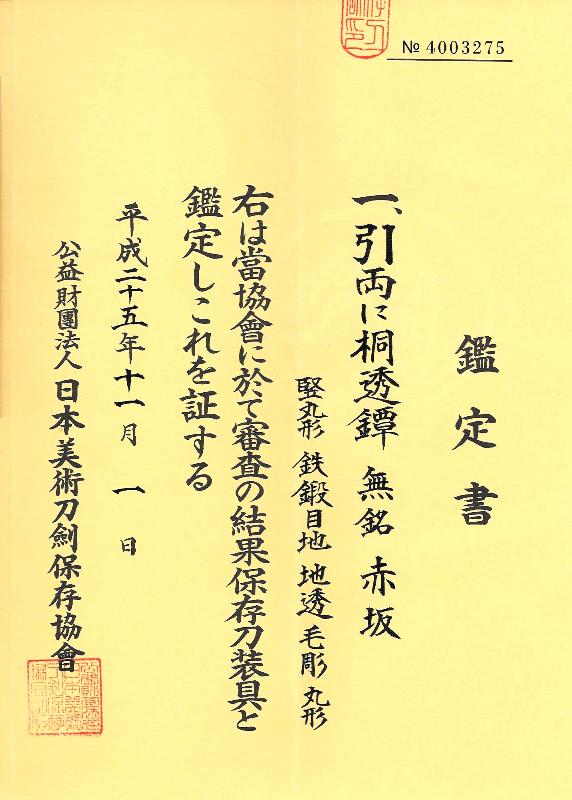 № 4003275
鑑定書
一、引両に桐透鐔 無銘 赤坂
竪丸形 鉄鍛目地 地透 毛彫 丸形
右は當協會に於て審査の結果保存刀装具と
鑑定しこれを証する
平成二十五年十一月 一 日
公益財團法人 日本美術刀劍保存協會